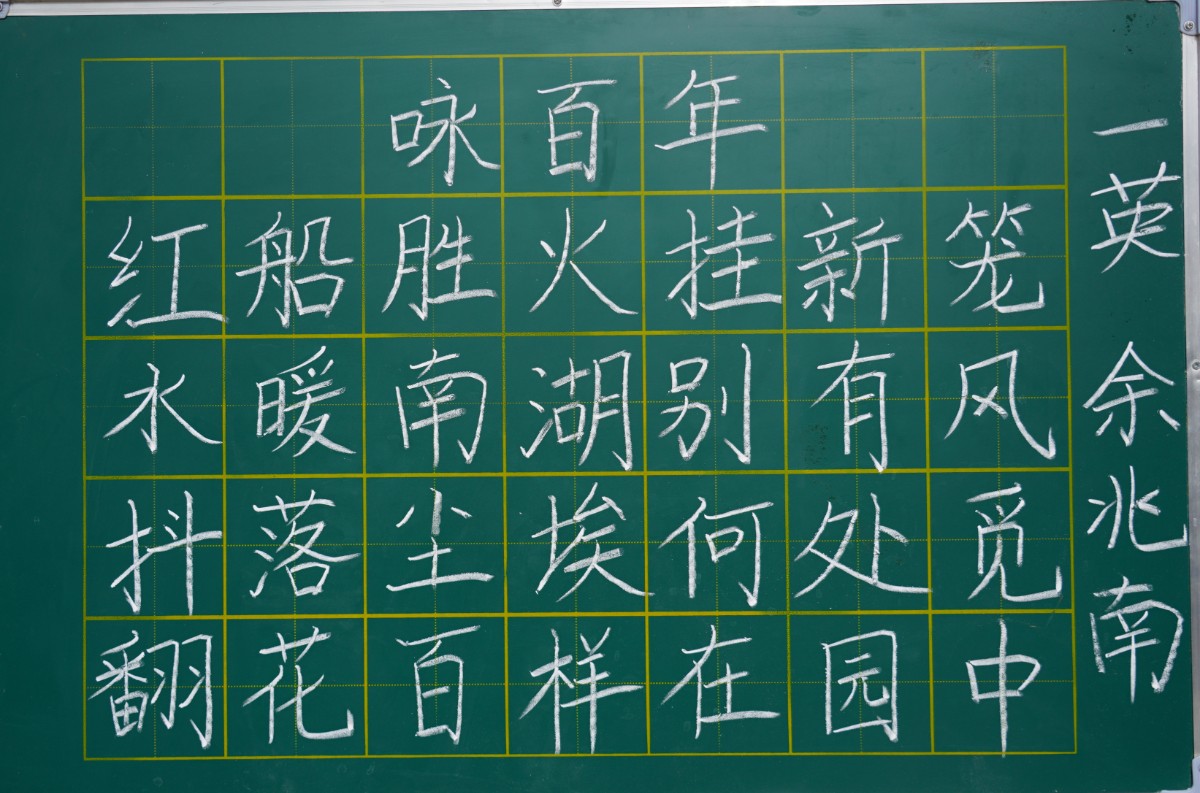 咏百年
红船胜火挂新笼
水暖南湖别有风
抖落尘埃何处觅
翻花百样在园中
一英 余兆南